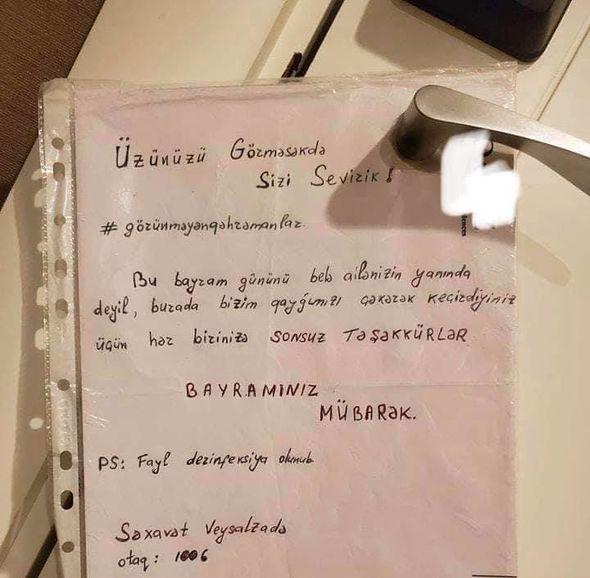 Üzünüzü Görməsəkdə
Sizi Sevirik!
# görünməyənqəhrəmanlar.
Bu bayram gününü belə ailənizin yanında
deyil, burada bizim qayğımızı çəkərək keçirdiyiniz
üçün hər birinizə SONSUZ TƏŞƏKKÜRLƏR
BAYRAMINIZ
MÜBARƏK.
PS: Fayl dezinfeksiya olunub
Səxavət Veysəlzadə
otaq: 1006